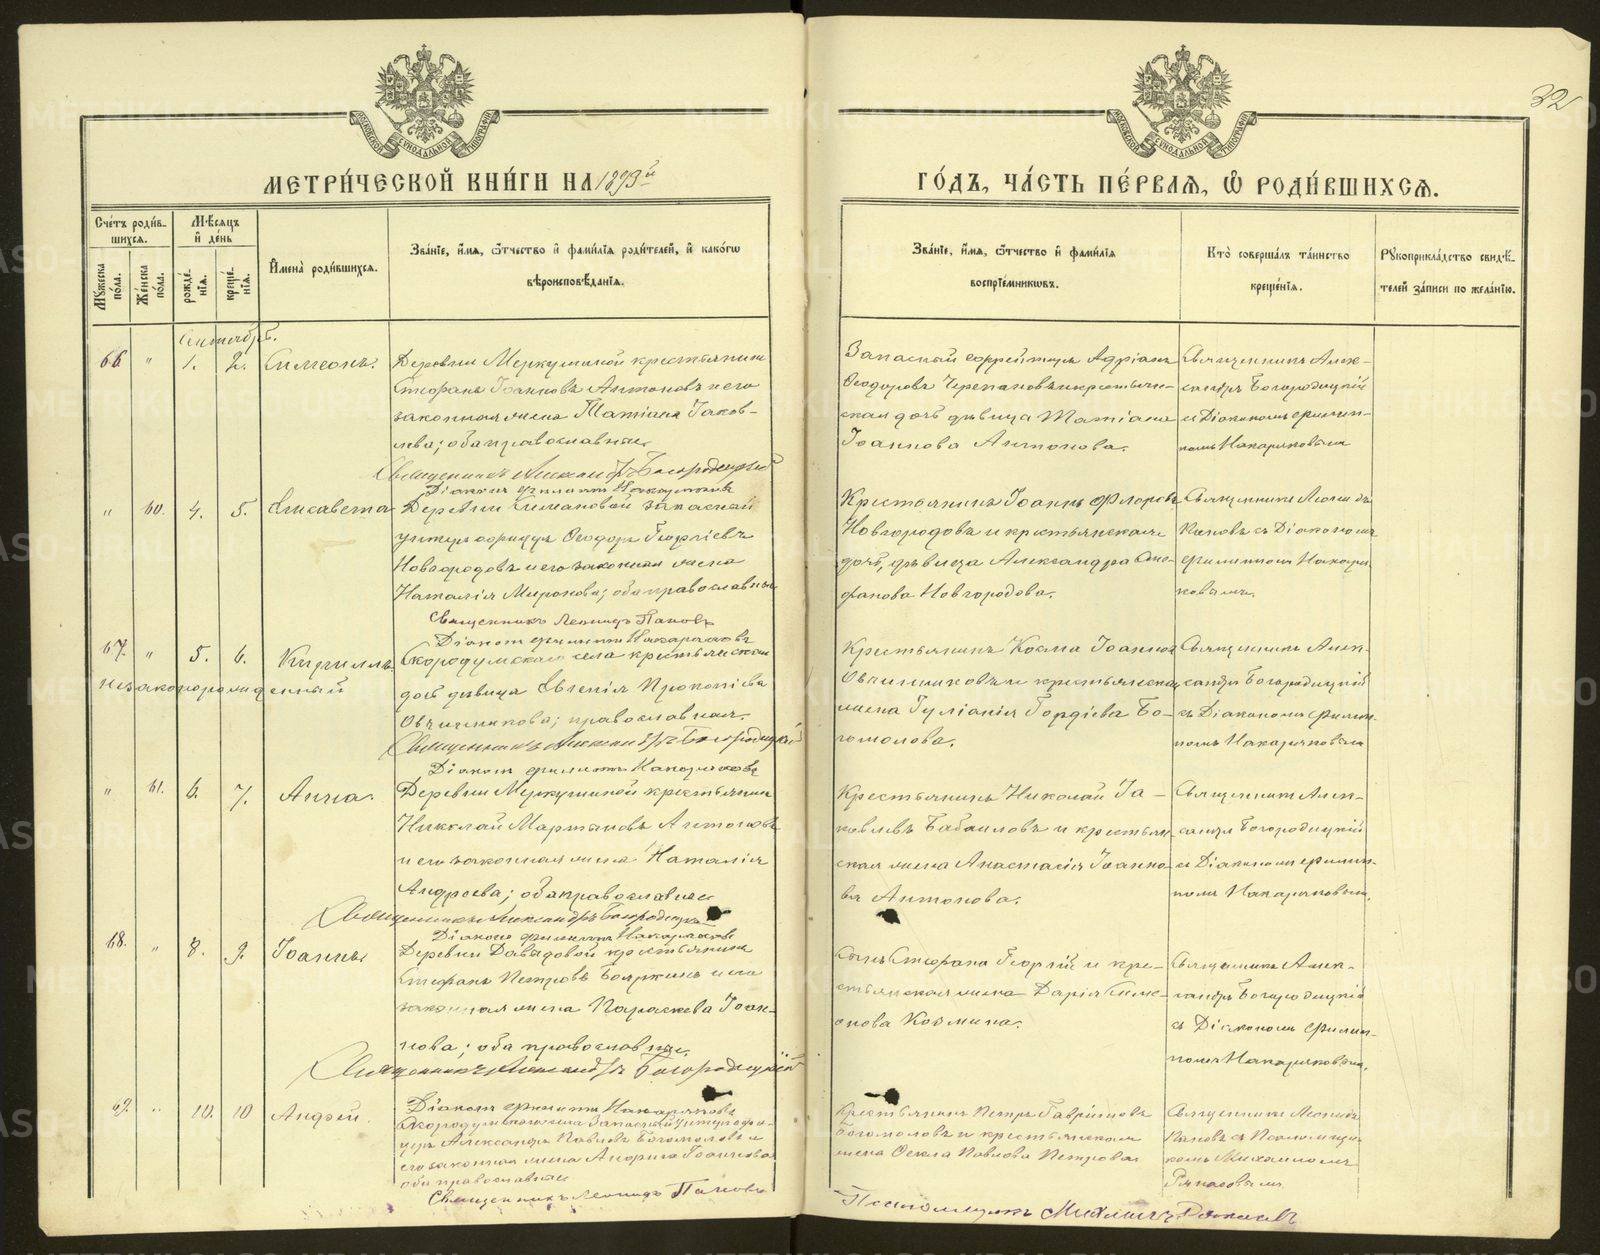 32
МЕТРИЧЕСКОЙ КНИГИ НА 1893й
ГОДЪ, ЧАСТЬ ПЕРВАЯ, Ѡ РОДИВШИХСЯ.
Счетъ родив-
шихся.
Мѣсяцъ
и день
Мужеска пола.
Женска пола.
рожденія.
крещенія.
Имена родившихся.
Званіе, имя, ѿчество и фамилія родителей, и какогѡ
вѣроисповѣданія.
Званіе, имя, ѿчество и фамилія
воспріемниковъ.
Кто совершалъ таинство
крещенія.
Рукоприкладство свидѣ-
телей записи по желанію.
Сентябрь.
66 " 1. 2. Симеонъ.
Деревни Меркушиной крестьянинъ
Стефанъ Іоанновъ Антоновъ и его
законная жена Татіана Іаков-
лева; оба православные
Священникъ Александръ Богородицкій
Діаконъ Филиппъ Накаряковъ
Запасный ефрейторъ Адріанъ
Ѳеодоровъ Черепановъ и крестьян-
ская дочь дѣвица Татіана
Іоаннова Антонова.
Священникъ Алек-
сандръ Богородицкій
съ Діакономъ Филип-
помъ Накаряковымъ
" 60. 4. 5. Елисавета
Деревни Симановой запасный
унтеръ офицеръ Ѳеодоръ Георгіевъ
Новгородовъ и его законная жена
Наталія Миронова; оба православные
Священникъ Леонидъ Поповъ
Діаконъ Филиппъ Накаряковъ
Крестьянинъ Іоаннъ Флоровъ
Новгородовъ и крестьянская
дочь, дѣвица Александра Сте-
фанова Новгородова.
Священникъ Леонидъ
Поповъ съ Діакономъ
Филиппомъ Накаря-
ковымъ.
67. " 5. 6. Кириллъ
незаконорожденный
Скородумскаго села крестьянская
дочь дѣвица Евгенія Прокопіева
Овчинникова; православная.
Священникъ Александръ Богородицкій
Діаконъ Филиппъ Накаряковъ
Крестьянинъ Косма Іоанновъ
Овчинниковъ и крестьянская
жена Іуліанія Гордіева Бо-
гомолова.
Священникъ Алек-
сандръ Богородицкій
съ Діакономъ Филип-
помъ Накаряковымъ
" 61. 6. 7. Анна.
Деревни Меркушиной крестьянинъ
Николай Мартиновъ Антоновъ
и его законная жена Наталія
Андреева; оба православные
Священникъ Александръ Богородицкій
Діаконъ Филиппъ Накаряковъ
Крестьянинъ Николай Іа-
ковлевъ Бабаиловъ и крестьян-
ская жена Анастасія Іоанно-
ва Антонова.
Священникъ Алек-
сандръ Богородицкій
съ Діакономъ Филип-
помъ Накаряковымъ.
68. " 8. 9. Іоаннъ.
Деревни Давыдовой крестьянинъ
Стефанъ Петровъ Бояркинъ и его
законная жена Параскева Іоан-
нова; оба православные.
Священникъ Александръ Богородицкій
Діаконъ Филиппъ Накаряковъ
Сынъ Стефана Георгій и кре-
стьянская жена Дарія Симе-
онова Козмина.
Священникъ Алек-
сандръ Богородицкій
съ Діакономъ Филип-
помъ Накаряковымъ.
69. " 10. 10 Андрей.
Скородумскаго села запасный унтеръ офи-
церъ Александръ Павловъ Богомоловъ и
его законная жена Іоаннова
оба православные
Священникъ Леонидъ Поповъ
Крестьянинъ Петръ Гавріиловъ
Богомоловъ и крестьянская
жена Ѳекла Павлова Петрова
Священникъ Леонидъ
Поповъ съ Псаломщи-
комъ Михаиломъ
Псаломщикъ Михаилъ